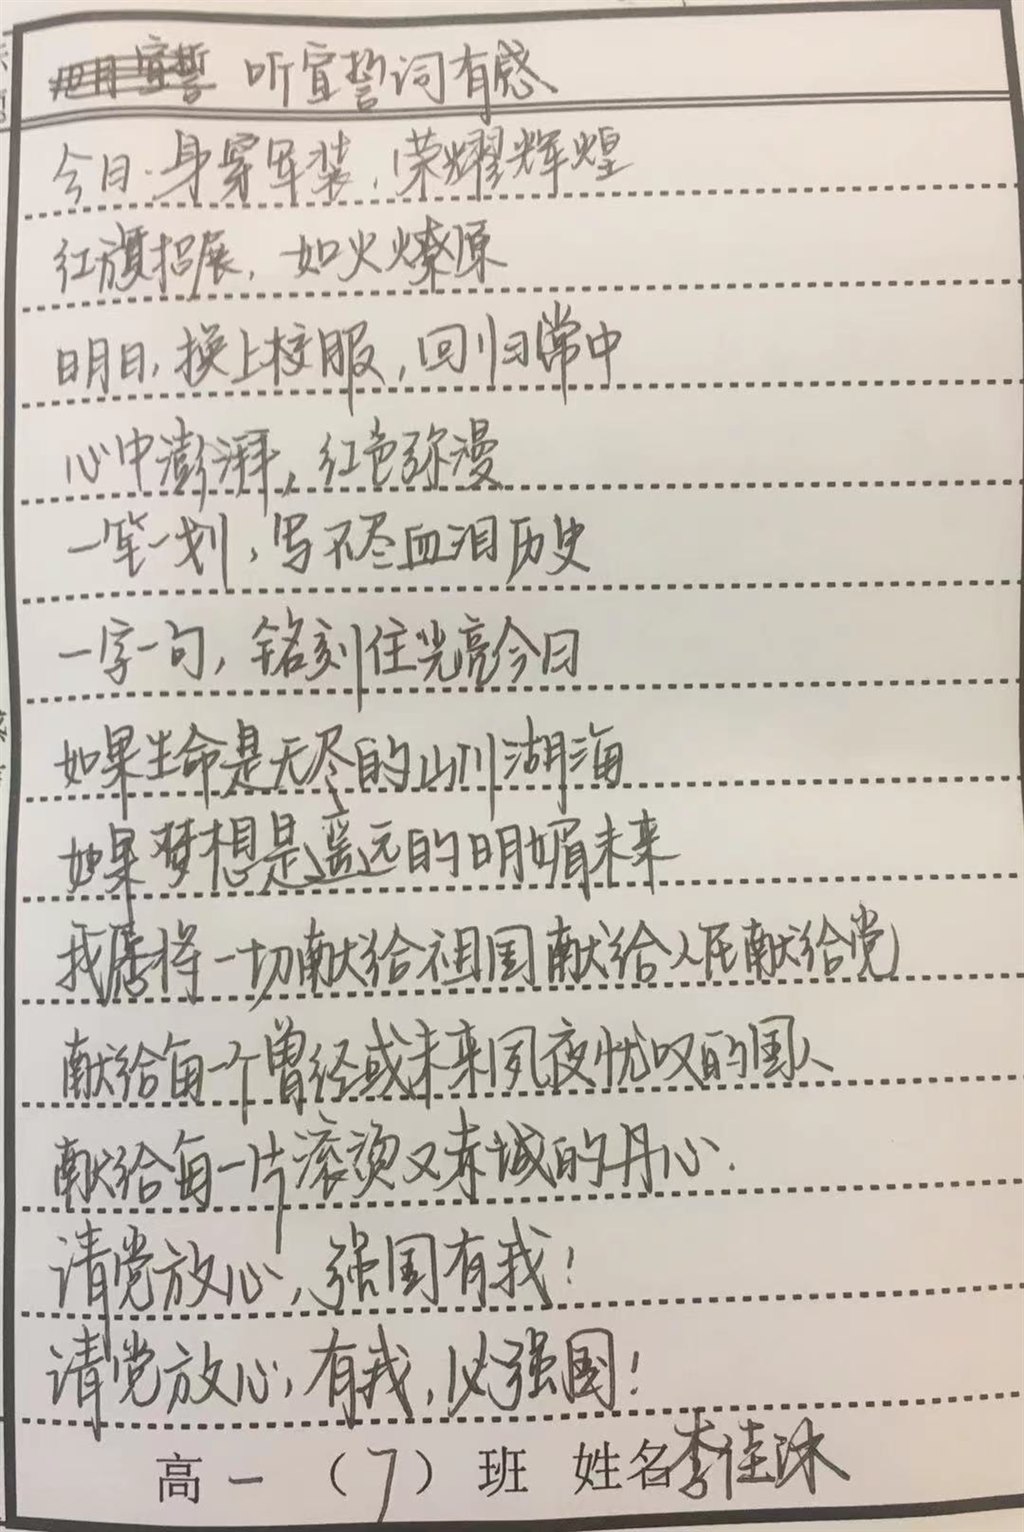 听宣誓词有感
今日.身穿军装,荣耀辉煌
红旗招展,如火燎原
明日,换上校服,回归常中
心中澎湃,红色弥漫
一笔一划,写不尽血泪历史
一字一句,铭刻住光亮今日
如果生命是无尽的山川湖海
如果梦想是遥远的明媚未来
我愿将一切献给祖国献给人民献给党
献给每一个曾经或未来夙夜忧叹的国人
献给每一片滚烫又赤城的丹心.
请党放心,强国有我!
请党放心,有我,必强国!
高一(7)班 姓名李佳沐